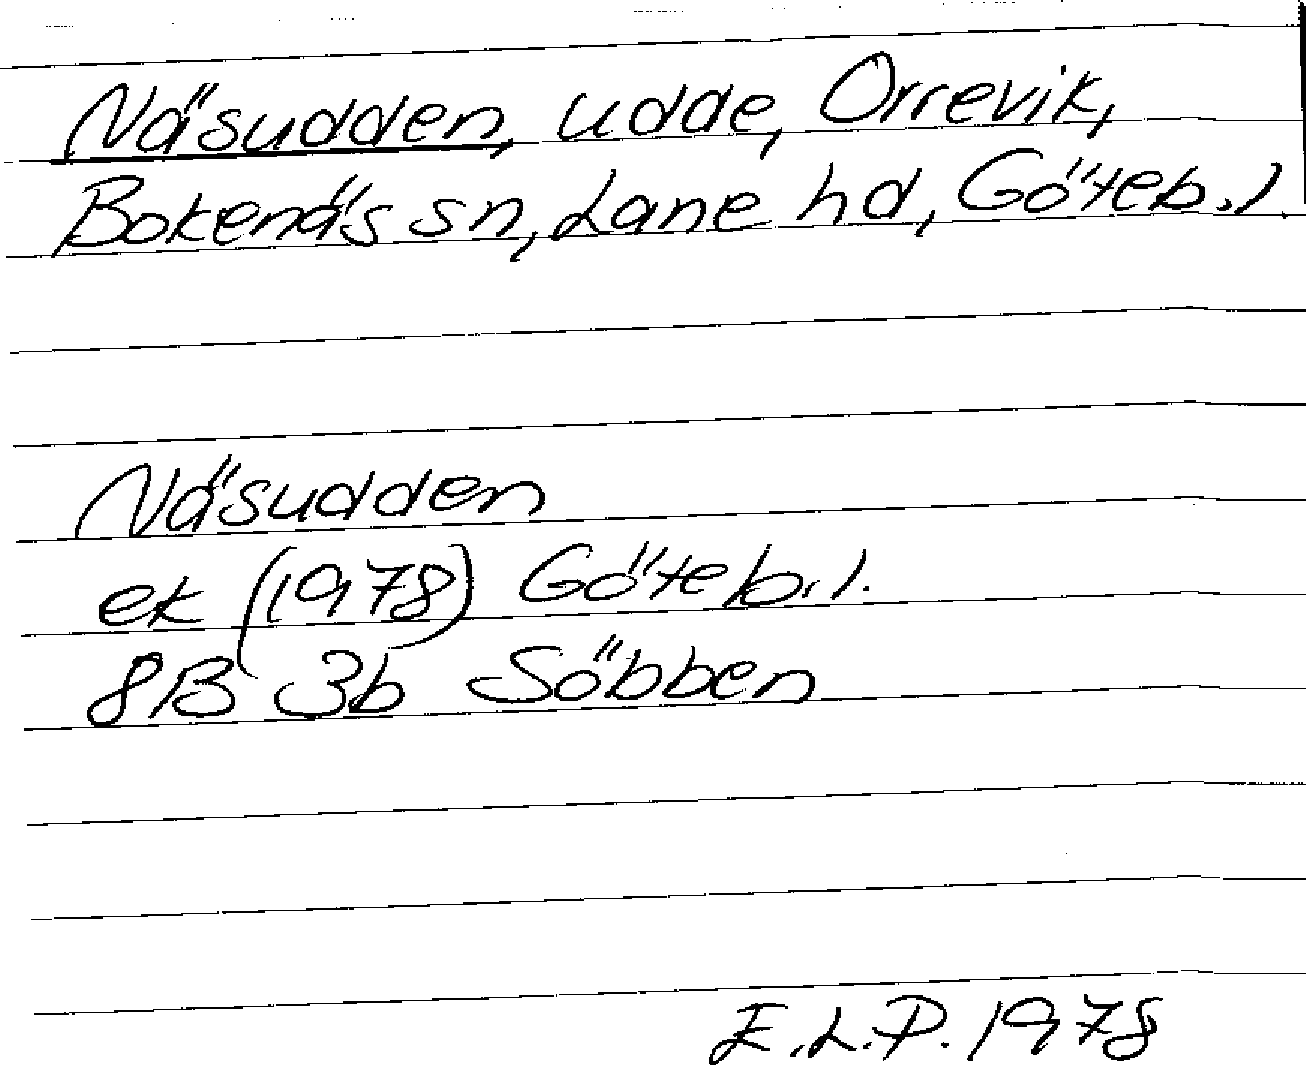 Näsudden, udde, Orrevik,
Bokenäs sn, Lane hd, Göteb. l.
Näsudden
ek (1978) Göteb. l.
8B 3b Söbben
E.L.P. 1978